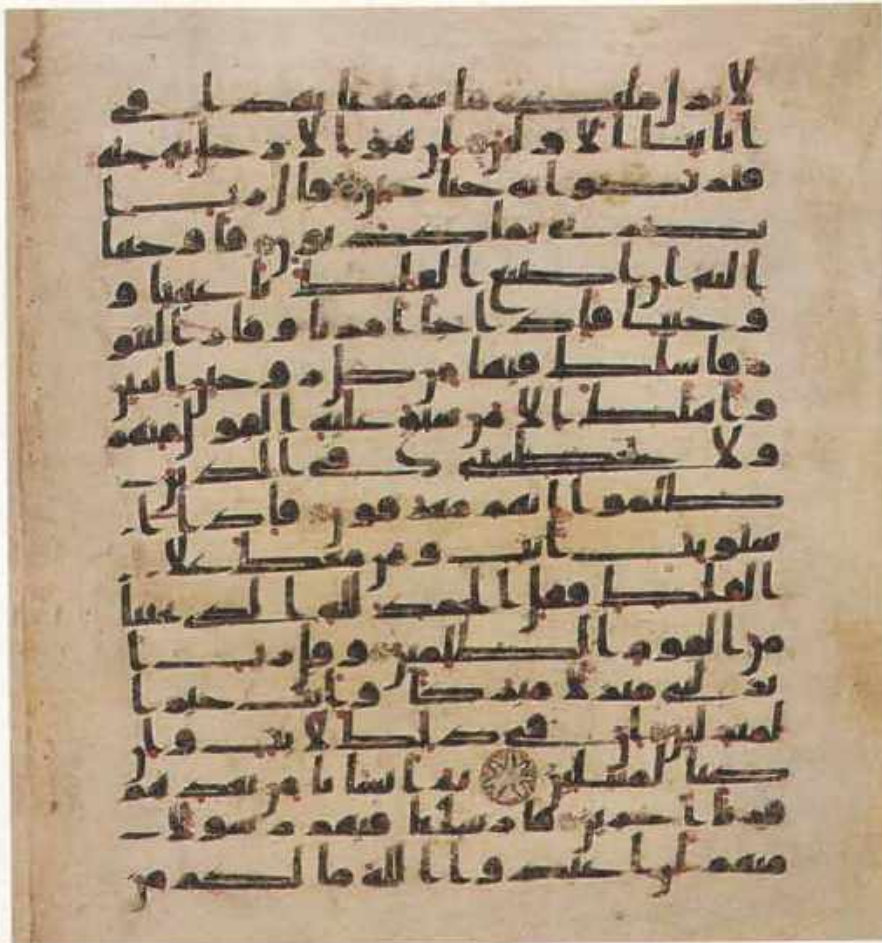 لانزل ملئكة ما سمعنا بهذا في
ابائنا الاولين ان هو الا رجل به جنة
فتربصوا به حتا حين قال رب ا
نصرني بما كذبون فاوحينا
اليه ان اصنع الفلك باعيننا و
وحينا فاذا جا امرنا وفار التنو
ر فاسلك فيها من كل زوجين اثنين
واهلك الا من سبق عليه القول منهم
ولا تخطبني في الذين
ظلموا انهم مغرقون فاذا ا
ستويت انت ومن معك علا
الفلك فقل الحمد لله الذي نجينا
من القوم الظلمين وقل رب ا
نزلني منزلا مبركا وانت خير ا
لمنزلين ان في ذلك لايت وان
كنا لمبتلين ثم انشانا من بعدهم
قرنا اخرين فارسلنا فيهم رسولا
منهم ان اعبدوا الله ما لكم من